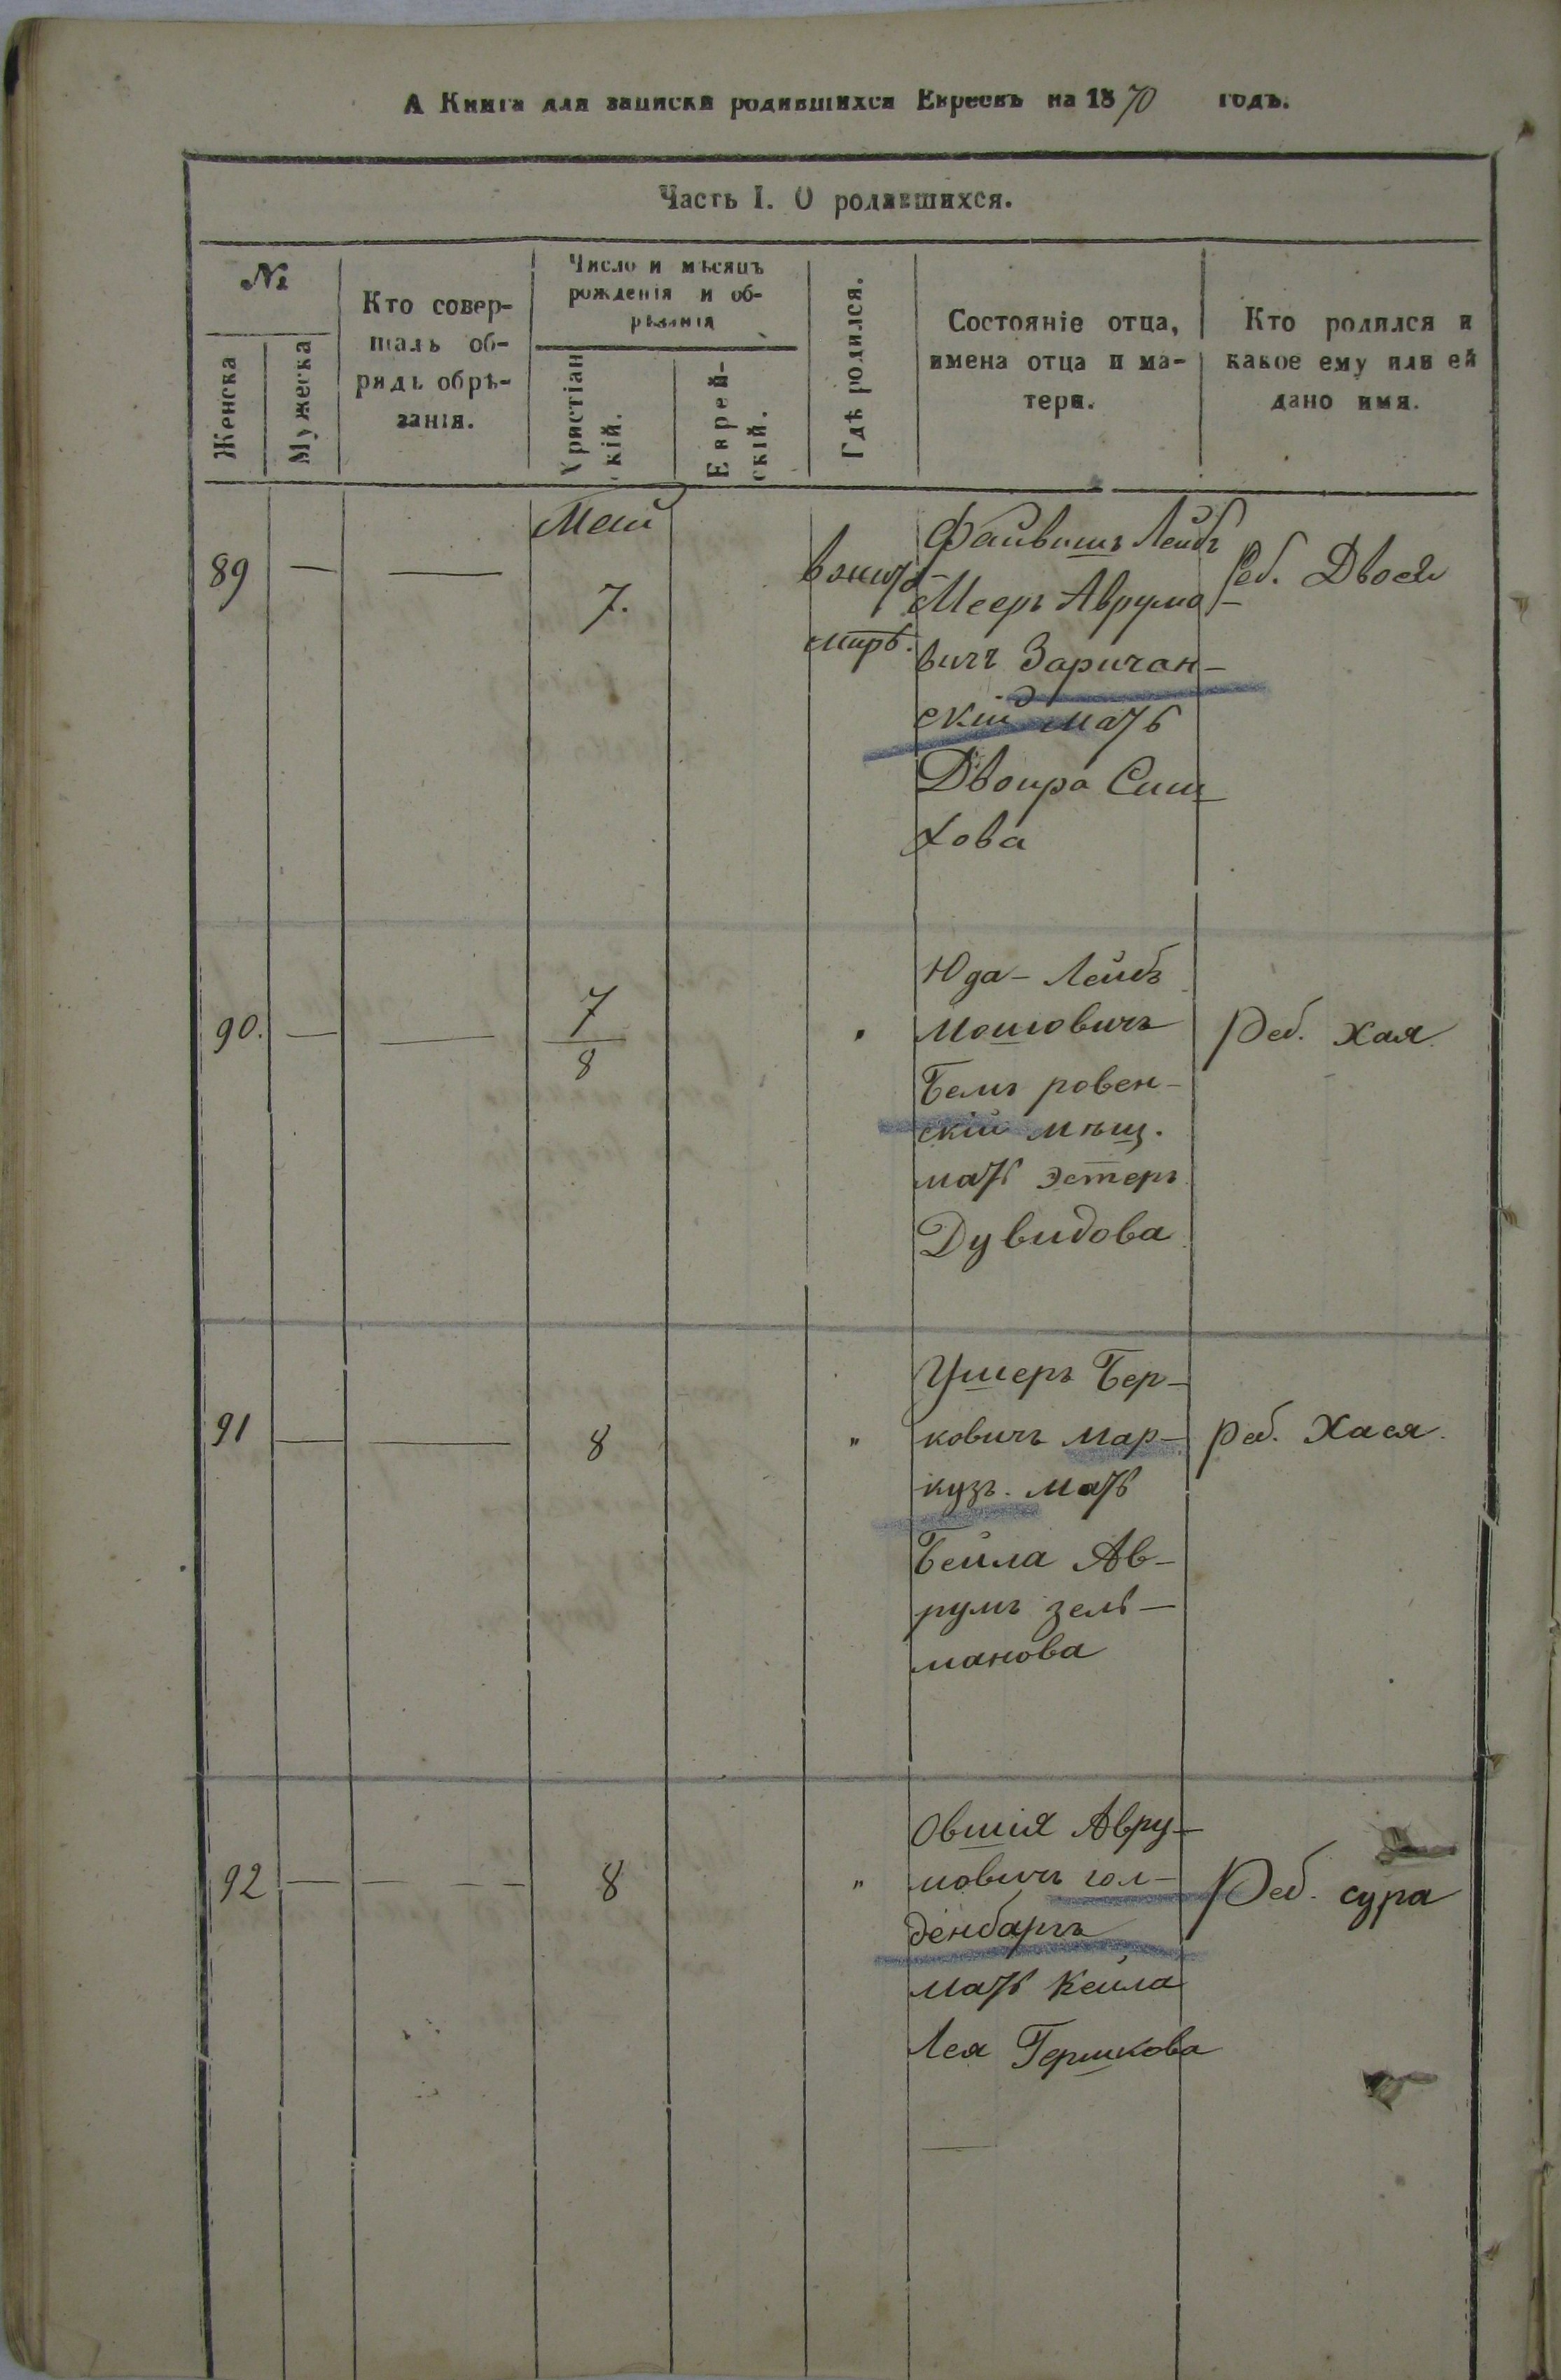 А Книга для записки родившихся Евреевъ на 1870 годъ.
Часть I. О родившихся.
№
Женска
Мужеска
Кто совер-
шалъ об-
рядъ обрѣ-
занія.
Число и мѣсяцъ
рожденія и об-
рѣзанія
Христіан
скій.
Еврей-
скій.
Гдѣ родился.
Состояніе отца,
имена отца и ма-
тери.
Кто родился и
какое ему или ей
дано имя.
Май
89 — — 7.
в жито-
мирѣ.
Файвишъ Лейбъ
Мееръ Аврумо-
вичъ Заричан-
скій мать
Двойра Сим
хова
Реб. Двося
90. — — 7/8 "
Юда - Лейбъ
Мошовичъ
Бемъ ровен-
скій мѣщ.
мать Эстеръ
Дувидова
Реб. Хая
91 — — 8 "
Ушеръ Бер-
ковичъ Мар-
кузъ. мать
Бейла Ав-
румъ зель-
манова
Реб. Хася.
92 — — — — 8 "
Овшія Авру-
мовичъ гол-
денбаргъ
мать Кейла
Лея Гершкова
Реб. сура